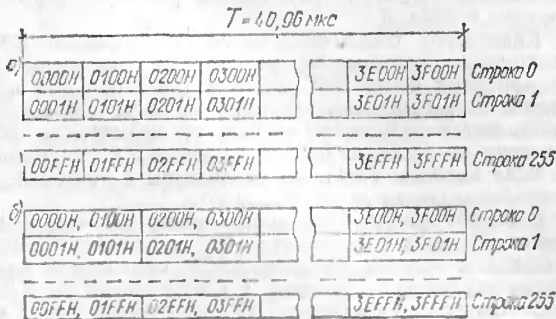 T = 40,96 мкс
а)
0000H 0100H 0200H 0300H 3E00H 3F00H Строка 0
0001H 0101H 0201H 0301H 3E01H 3F01H Строка 1
00FFH 01FFH 02FFH 03FFH 3EFFH 3FFFH Строка 255
б)
0000H, 0100H 0200H, 0300H 3E00H, 3F00H Строка 0
0001H, 0101H 0201H, 0301H 3E01H, 3F01H Строка 1
00FFH, 01FFH 02FFH, 03FFH 3EFFH, 3FFFH Строка 255